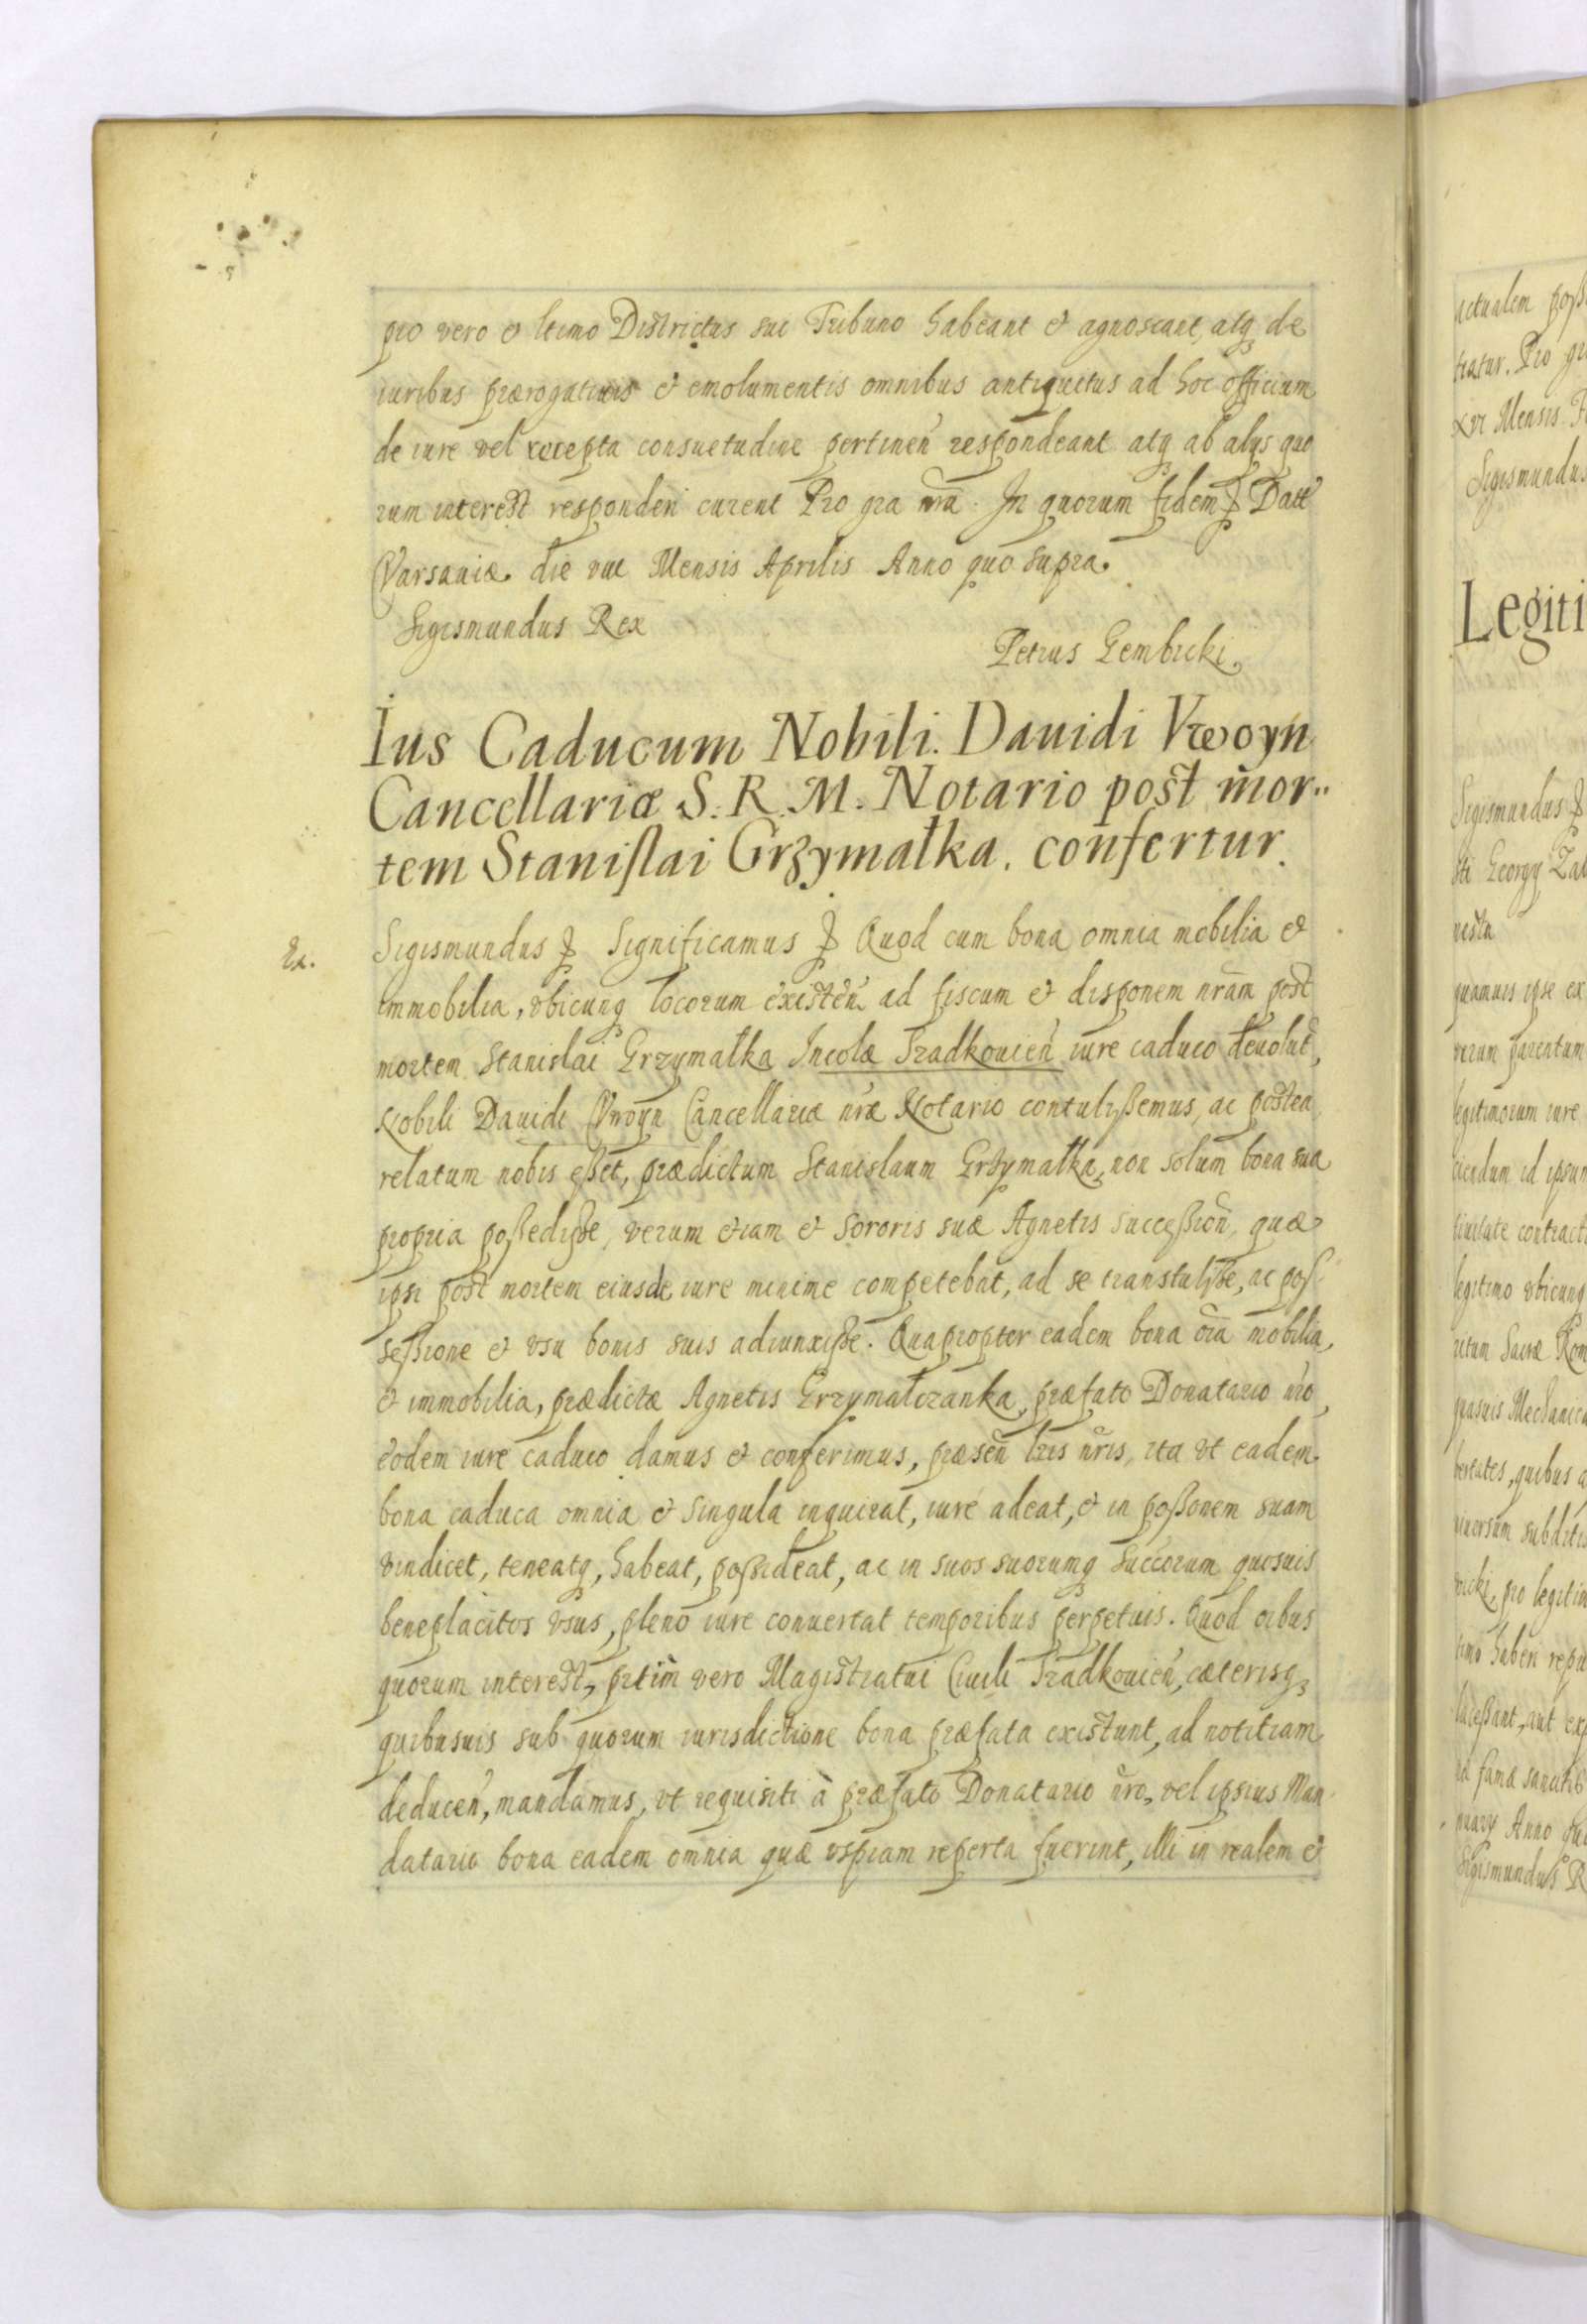 pro vero et ltimo Districtus sui Tribuno habeant et agnoscant, atq de
iuribus prærogatiuis et emolumentis omnibus antiquitus ad hoc officium
de iure vel recepta consuetudine pertinen̄ respondeant atq ab alÿs quo
rum interest responderi curent Pro gra nr̄a. In quorum fidem Datt
Varsauiæ die vii Mensis Aprilis Anno quo supra.
Sigismundus Rex
Petrus Gembicki.
Ius Caducum Nobili. Dauidi Vwoyn
Cancellariæ S. R. M. Notario post mor..
tem Stanislai Grzymałka. confertur.
Ex.
Sigismundus Significamus Quod cum bona omnia mobilia et
immobilia, vbicunq locorum existen̄ ad fiscum et disponem nr̄am post
mortem Stanislai Grzymałka Incolæ Tradkouien̄ iure caduco deuolut,
Nobili Dauidi Vwoyn Cancellariæ nr̄æ Notario contulißemus, ac postea
relatum nobis eßet, prædictum Stanislaum Grzymałka, non solum bona sua
propria poßedißse, verum etiam et sororis suæ Agnetis succeßion̄, quæ
ipsi post mortem eiusde iure minime competebat, ad se transtulißse, ac pos
seßione et vsu bonis suis adiunxiße. Quapropter eadem bona oīa mobilia,
et immobilia, prædictæ Agnetis Grzymałczanka, præfato Donatario nr̄o,
eodem iure caduco damus et conferimus, præsen̄ lr̄is nr̄is, ita vt eadem
bona caduca omnia et singula inquirat, iure adeat, et in poßonem suam
vindicet, teneatq, habeat, poßideat, ac in suos suorumq succorum quosuis
beneplacitos vsus, pleno iure conuertat temporibus perpetuis. Quod oībus
quorum interest, pr̄tim vero Magistratui Ciuili Tradkouien̄, cæterisq
quibusuis sub quorum iurisdictione bona præfata existunt, ad notitiam
deducen̄, mandamus, vt requisiti à præfato Donatario nr̄o, vel ipsius Man
datario bona eadem omnia quæ vspiam reperta fuerint, illi in realem et
actualem poß
tratur. Pro gr
xvi Mensis F
Sigismundus
Legiti
Sigismundus
sti Georgÿ Zal
quamuis ipse ex
rerum parentum
legitimorum iure
ciendum id ipsum
legitimo vbicunq
ritum Sacræ Rom
quasuis Mechanica
bertates, quibus a
niuersum subditis
timo haberi repu
laceßant, aut exp
nuarÿ Anno
Sigismundus R